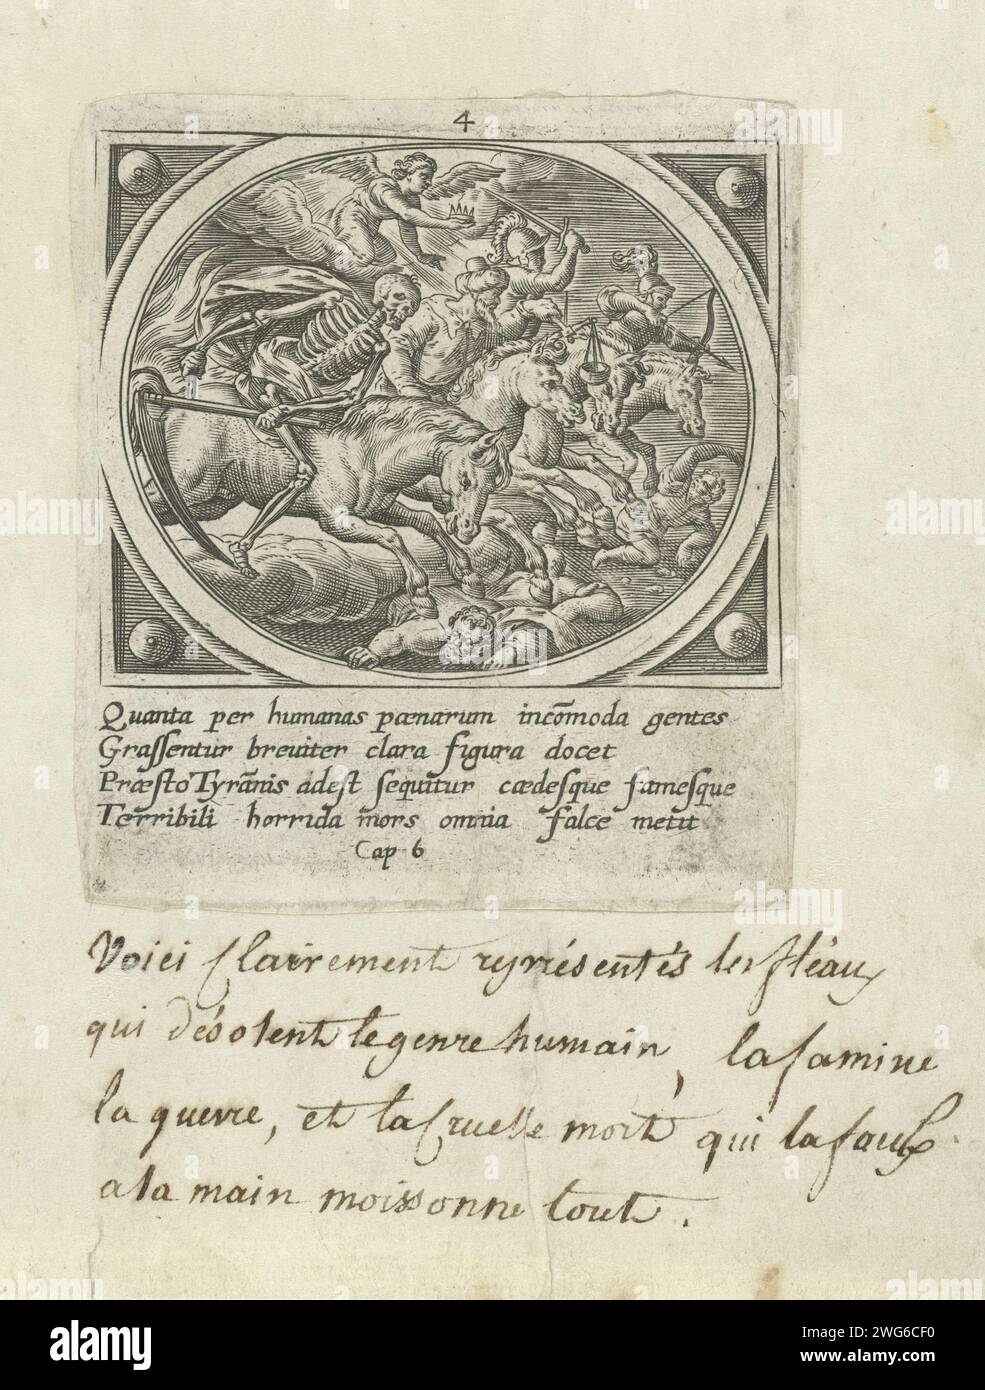 4
Quanta per humanas pœnarum incōmoda gentes
Grassentur breuiter clara figura docet
Præsto Tyrānis adest sequitur cædesque famesque
Terribili horrida mors omnia falce metit
Cap 6
Voici clairrement reprèsentés les fléaux
qui désolent le genre humain, la famine
la guerre, et la cruelle mort qui la faulx
a la main moissonne tout.
alamy
www.alamy.com
Image ID: 2WG6CF0